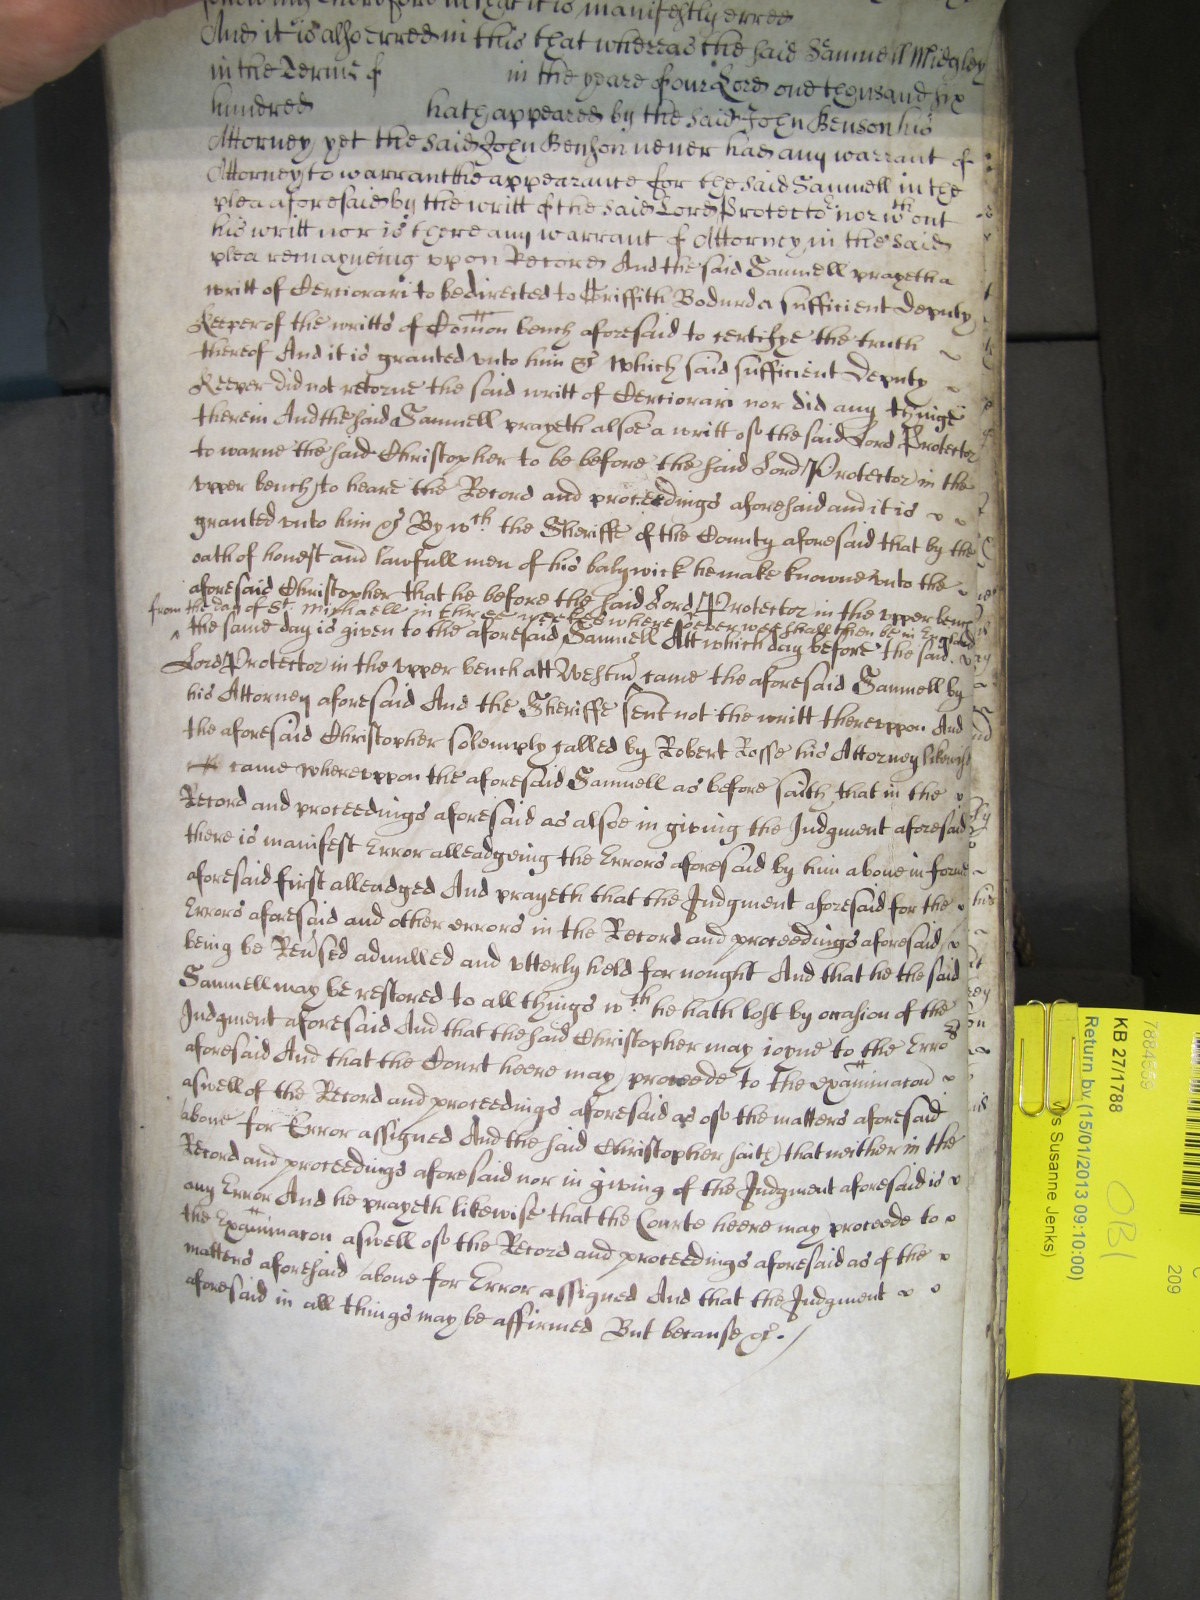 therefore in that it is manifestly erred
And it is alsoe erred in this that whereas the said Samuell Midgley
in the Terme of in the yeare of our Lord one thousand six
hundred hath appeared by the said John Benson his
Attorney yet the said John Benson never had any warrant of
Attorney to warrant the appearance for the said Samuell in the
plea aforesaid by the writt of the said Lord Protector nor wth out
his writt nor is there any warrant of Attorney in the said
plea remayneing upon Record And the said Samuell prayeth a
writt of Cerciorari to be directed to Griffith Bodurda sufficient Deputy
Keeper of the writts of Comon bench aforesaid to certifye the truth
thereof And it is granted unto him &c which said sufficient Deputy
Keeper did not retorne the said writt of Cerciorari nor did any thinge
therein And the said Samuell prayeth alsoe a writt of the said Lord Protector
to warne the said Christopher to be before the said Lord Protector in the
upper bench to heare the Record and proceedings aforesaid and it is
granted unto him &c By wch the Sheriffe of the County aforesaid that by the
oath of honest and lawfull men of his balywick he make knowne unto the
aforesaid Christopher that he before the said Lord Protector in the upper bench
from the day of St. Michaell in three weekes wheresoever wee shall then be in England
the same day is given to the aforesaid Samuell Att which day before the said
Lord Protector in the upper bench att Westmr came the aforesaid Samuell by
his Attorney aforesaid And the Sheriffe sent not the writt thereuppon And
the aforesaid Christopher solemply called by Robert Rosse his Attorney likewise
came whereuppon the aforesaid Samuell as before saith that in the
Record and proceedings aforesaid as alsoe in giving the Judgment aforesaid
there is manifest Error alleadgeing the Errors aforesaid by him above in forme
aforesaid first alleadged And prayeth that the Judgment aforesaid for the
Errors aforesaid and other errors in the Record and proceedings aforesaid
being be Reversed adnulled and utterly held for nought And that he the said
Samuell may be restored to all things wch he hath lost by occasion of the
Judgment aforesaid And that the said Christopher may ioyne to the Errors
aforesaid And that the Court heere may proceede to the examinacon
aswell of the Record and proceedings aforesaid as of the matters aforesaid
above for Error assigned And the said Christopher saith that neither in the
Record and proceedings aforesaid nor in giving of the Judgment aforesaid is
any Error And he prayeth likewise that the Courte heere may proceede to
the Examinacon aswell of the Record and proceedings aforesaid as of the
matters aforesaid above for Error assigned And that the Judgment
aforesaid in all things may be affirmed But because &c.
7884559
KB 27/1788
Return by (15/01/2013 09:10:00)
Susanne Jenks)
OBI
209